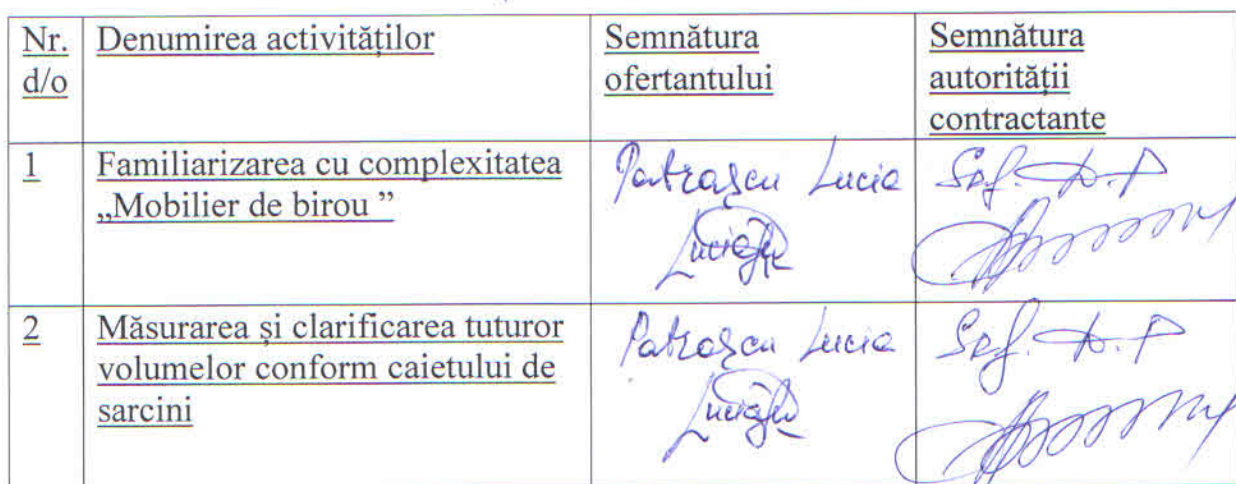 Nr. d/o
Denumirea activităților
Semnătura ofertantului
Semnătura autorității contractante
1
Familiarizarea cu complexitatea
„Mobilier de birou ”
Patrașcu Lucia
2
Măsurarea și clarificarea tuturor
volumelor conform caietului de
sarcini
Patrașcu Lucia